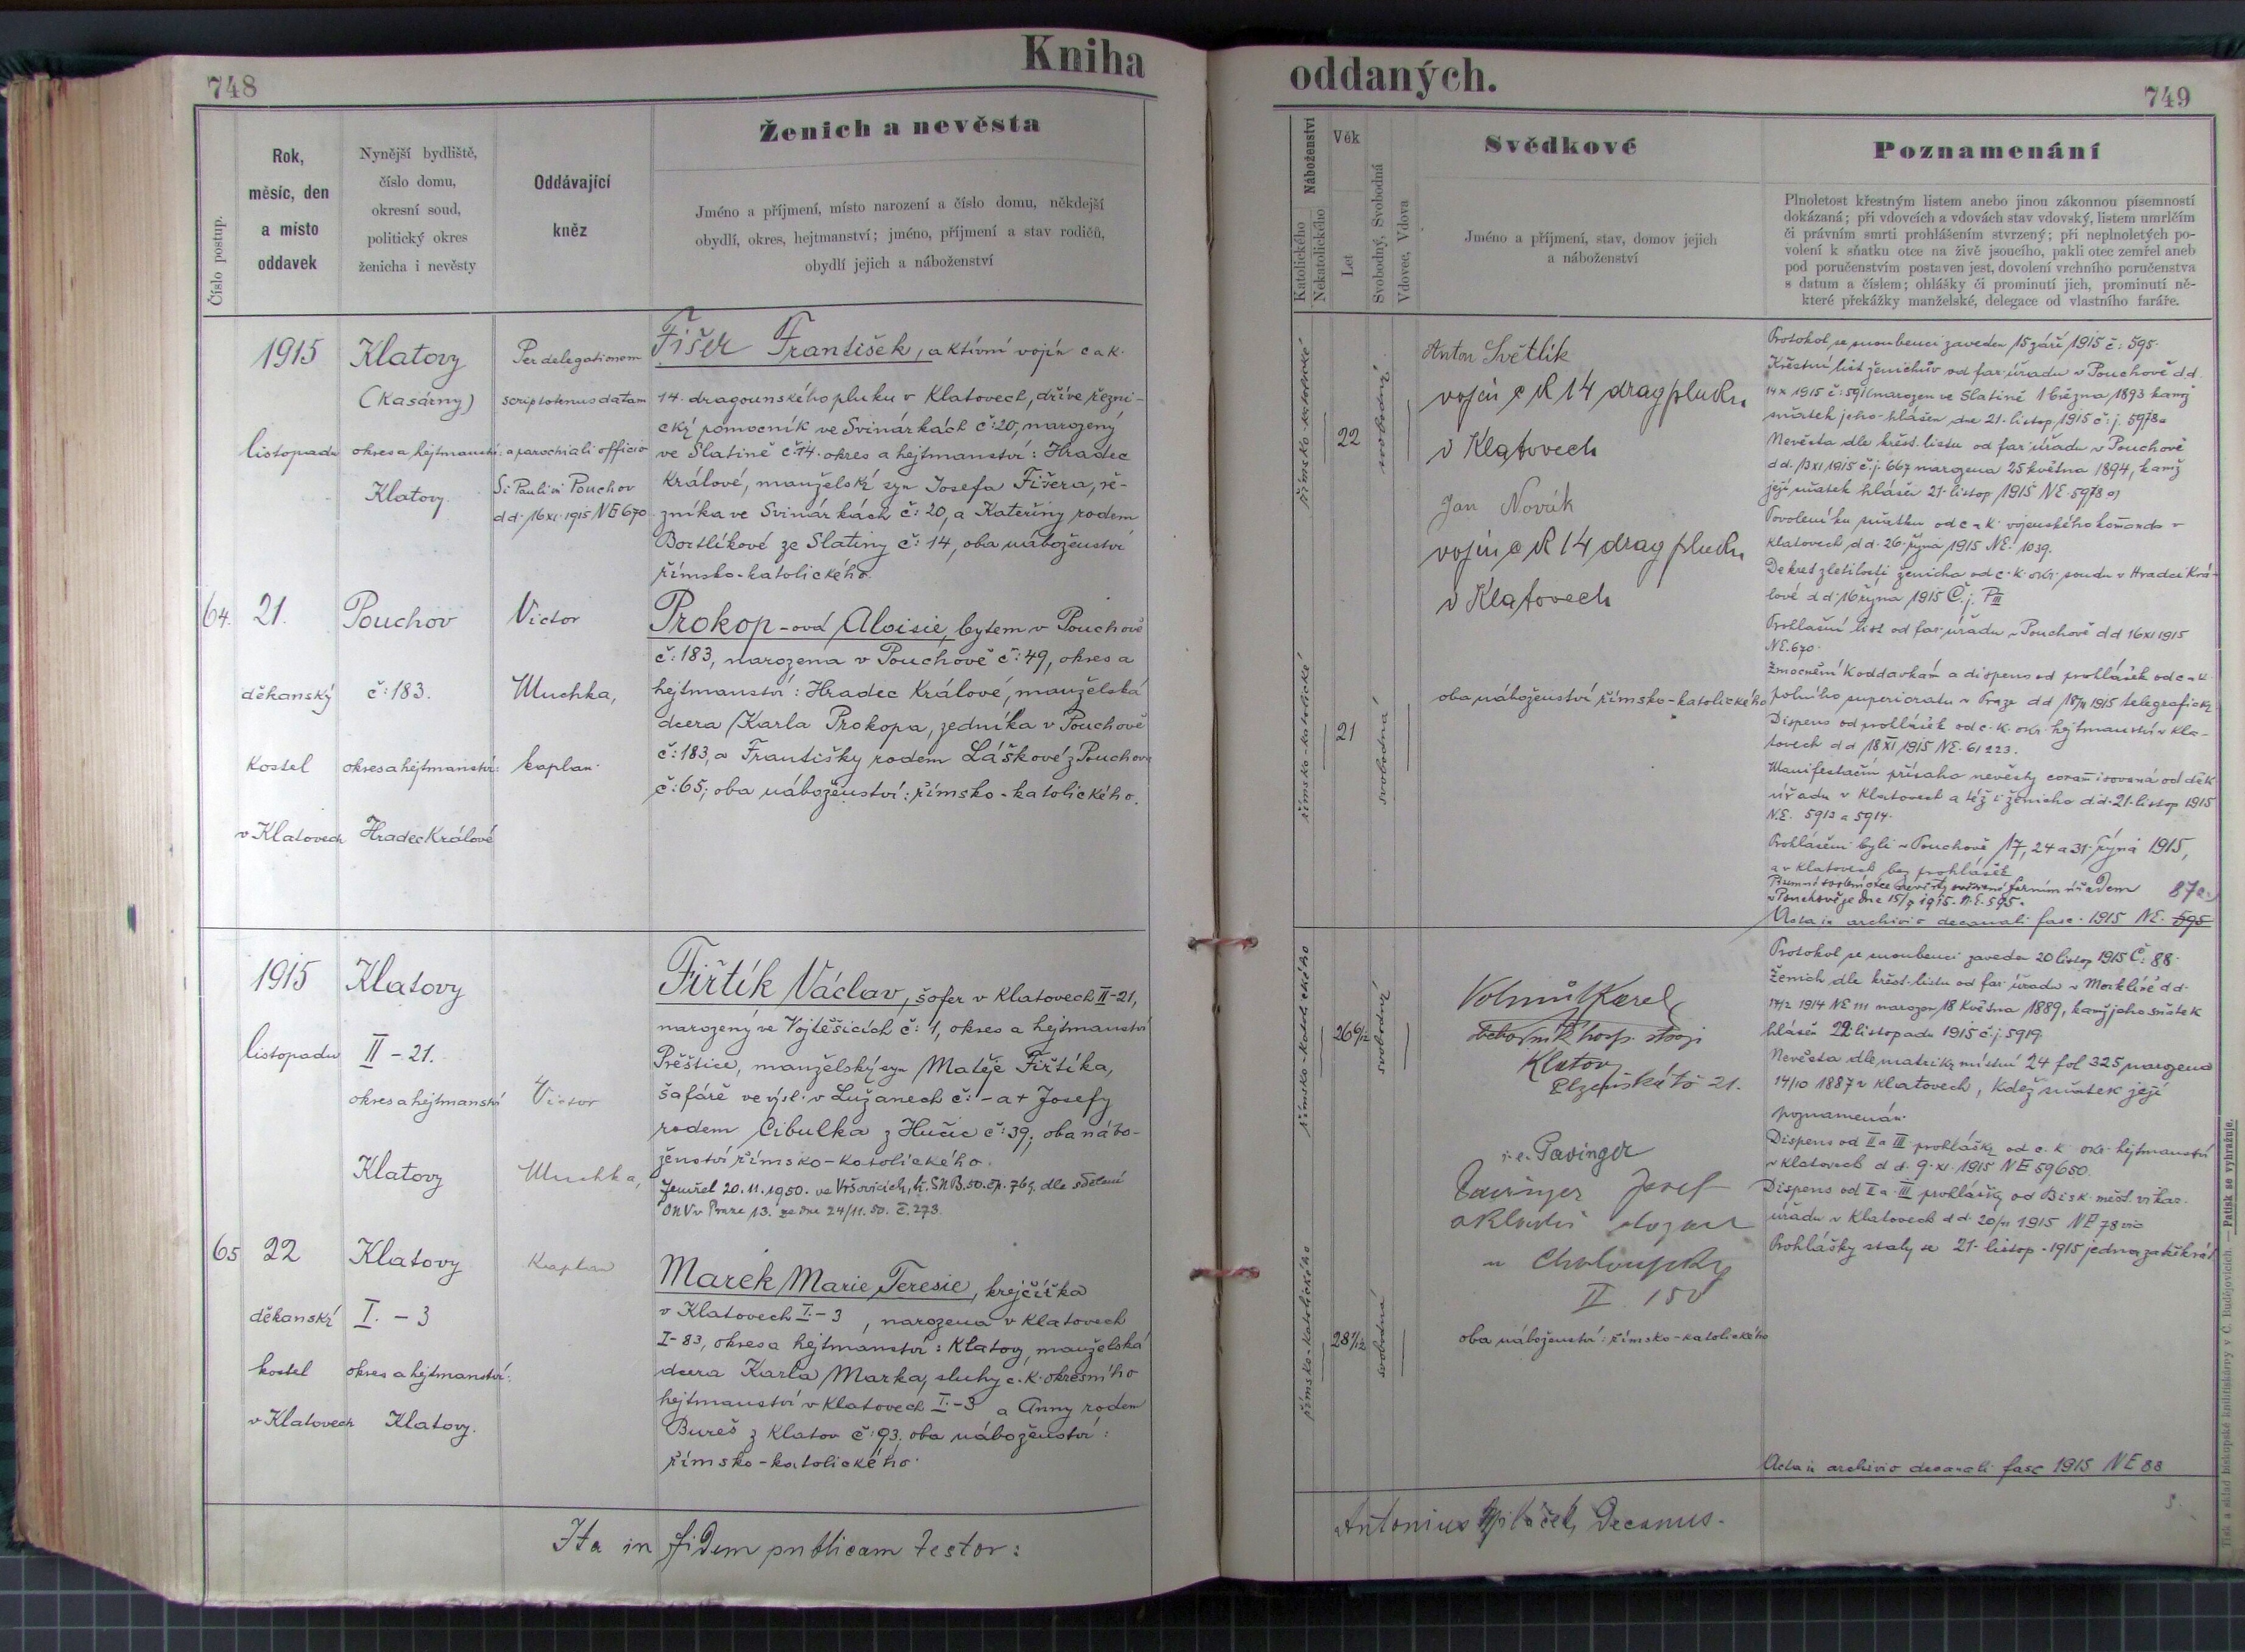 748
Kniha
oddaných.
749
Číslo postup.
Rok,
měsíc, den
a místo
oddavek
Nynější bydliště,
číslo domu,
okresní soud,
politický okres
ženicha i nevěsty
Oddávající
kněz
Ženich a nevěsta
Jméno a příjmení, místo narození a číslo domu, někdejší
obydlí, okres, hejtmanství; jméno, příjmení a stav rodičů,
obydlí jejich a náboženství
Náboženství
Katolického
Nekatolického
Věk
Let
Svobodný, Svobodná
Vdovec, Vdova
Svědkové
Jméno a příjmení, stav, domov jejich
a náboženství
Poznamenání
Plnoletost křestným listem anebo jinou zákonnou písemností
dokázaná; při vdovcích a vdovách stav vdovský, listem umrlčím
či právním smrti prohlášením stvrzený; při neplnoletých po-
volení k sňatku otce na živě jsoucího, pakli otec zemřel aneb
pod poručenstvím postaven jest, dovolení vrchního poručenstva
s datum a číslem; ohlášky či prominutí jich, prominutí ně-
které překážky manželské, delegace od vlastního faráře.
64.
1915
listopadu
21.
děkanský
kostel
v Klatovech
Klatovy
(Kasárny)
okres a hejtmanství:
Klatovy.
Pouchov
č: 183.
okres a hejtmanství:
Hradec Králové
Per delegationem
scripto tenus datam
a parochiali officio
Si Pauli in Pouchov
dd. 16 XI. 1915 NE 670
Victor
Muchka,
kaplan.
Fišer František, aktivní vojín c a k.
14. dragounského pluku v Klatovech, dříve řezni-
cký pomocník ve Svinárkách č: 20, narozený
ve Slatině č: 14. okres a hejtmanství: Hradec
Králové, manželský syn Josefa Fišera, ře-
zníka ve Svinárkách č: 20, a Kateřiny rodem
Bortlíkové ze Slatiny č: 14, oba náboženství
římsko-katolického.
Prokop-ová Aloisie, bytem v Pouchově
č: 183, narozena v Pouchově č: 49, okres a
hejtmanství: Hradec Králové, manželská
dcera Karla Prokopa, zedníka v Pouchově
č: 183, a Františky rodem Láškové z Pouchova
č: 65; oba náboženství: římsko-katolického.
římsko-katolické
22
svobodný
římsko-katolické
21
svobodná
Anton Světlík
vojín c k 14 drag pluku
v Klatovech
Jan Novák
vojín c k 14 drag pluku
v Klatovech
oba náboženství římsko-katolického
Protokol se snoubenci zaveden 15 září 1915 č: 595.
Křestní list ženichův od far. úřadu v Pouchově dd.
14 X 1915 č: 591 narozen ve Slatině 1 března 1893 kamž
sňatek jeho hlášen dne 21. listop. 1915 č: j. 5978a
Nevěsta dle křest. listu od far. úřadu v Pouchově
dd. 13 XI 1915 č. j. 667 narozena 25 května 1894, kamž
její sňatek hlášen 21. listop 1915 NE. 5978 a)
Povolení ku sňatku od c a k vojenského komanda v
Klatovech dd. 26. října 1915 NE: 1039.
Dekret zletilosti ženicha od c. k. okr. soudu v Hradci Krá-
lové dd. 16 října 1915 Č. j. P III
Prohlašní list od far. úřadu v Pouchově dd 16 XI 1915
NE. 670.
Zmocnění k oddavkám a dispens od prohlášek od c a k
polního superiorátu v Praze dd 18/11 1915 telegraficky
Dispens od prohlášek od c. k. okr. hejtmanství v Kla-
tovech dd 18 XI 1915 NE. 61223.
Manifestační přísaha nevěsty coram isovaná od děk.
úřadu v Klatovech a též i ženicha dd. 21. listop 1915
NE. 5913 a 5914.
Prohlášeni byli v Pouchově 17, 24 a 31. října 1915,
a v Klatovech bez prohlášek
Písemné svolení otce nevěsty ověřené farním úřadem
v Pouchově je dne 15/9 1915. N. E. 595.
87a.
Acta in archivio decanali fasc. 1915 NE. 595
65
1915
listopadu
22
děkanský
kostel
v Klatovech
Klatovy
II - 21.
okres a hejtmanství
Klatovy
Klatovy
I. - 3
okres a hejtmanství:
Klatovy.
Victor
Muchka,
Kaplan
Fiřtík Václav, šofer v Klatovech II-21,
narozený ve Vojtěšicích č: 1, okres a hejtmanství
Přeštice, manželský syn Matěje Fiřtíka,
šafáře ve výsl. v Lužanech č: - a + Josefy
rodem Cibulka z Hučic č: 39; oba nábo-
ženství římsko-katolického.
Zemřel 20.11.1950. ve Vršovicích, dle sdělení
ONV v Praze 13. ze dne 24/11. 50. č. 273.
Marek Marie Teresie, krejčířka
v Klatovech I.-3, narozena v Klatovech
I-83, okres a hejtmanství: Klatovy, manželská
dcera Karla Marka, sluhy c. k. okresního
hejtmanství v Klatovech I.-3 a Anny rodem
Bureš z Klatov č: 93; oba náboženství:
římsko-katolického.
římsko-katolického
26 6/12
svobodný
římsko-katolického
28 1/12
svobodná
Karel
hosp. stroji
Klatov
Plzeňská tř 21.
i. e. Pavinger
Josef
II 150
oba náboženství: římsko-katolického
Protokol se snoubenci zaveden 20 listop 1915 Č: 88.
Ženich dle křest. listu od far. úřadu v Merklíně dd.
17/2 1914 NE 111 narozen 18 května 1889, kamž jeho sňatek
hlášen 22 listopadu 1915 č. j. 5919.
Nevěsta dle matriky místní 24 fol 325 narozena
14/10 1887 v Klatovech, kdež sňatek její
poznamenán.
Dispens od II a III prohlášky od c. k. okr. hejtmanství
v Klatovech dd. 9. XI. 1915 NE 59650.
Dispens od II a III prohlášky od Bisk. měst. vikar.
úřadu v Klatovech dd. 20/11 1915 NE 78 vic
Prohlášky staly se 21. listop. 1915 jednou za třikrát.
Acta in archivio decanali fasc 1915 NE 88
Ita in fidem publicam testor:
Antonius Decanus.
Tisk a sklad biskupské knihtiskárny v Č. Budějovicích. — Patisk se vyhražuje.